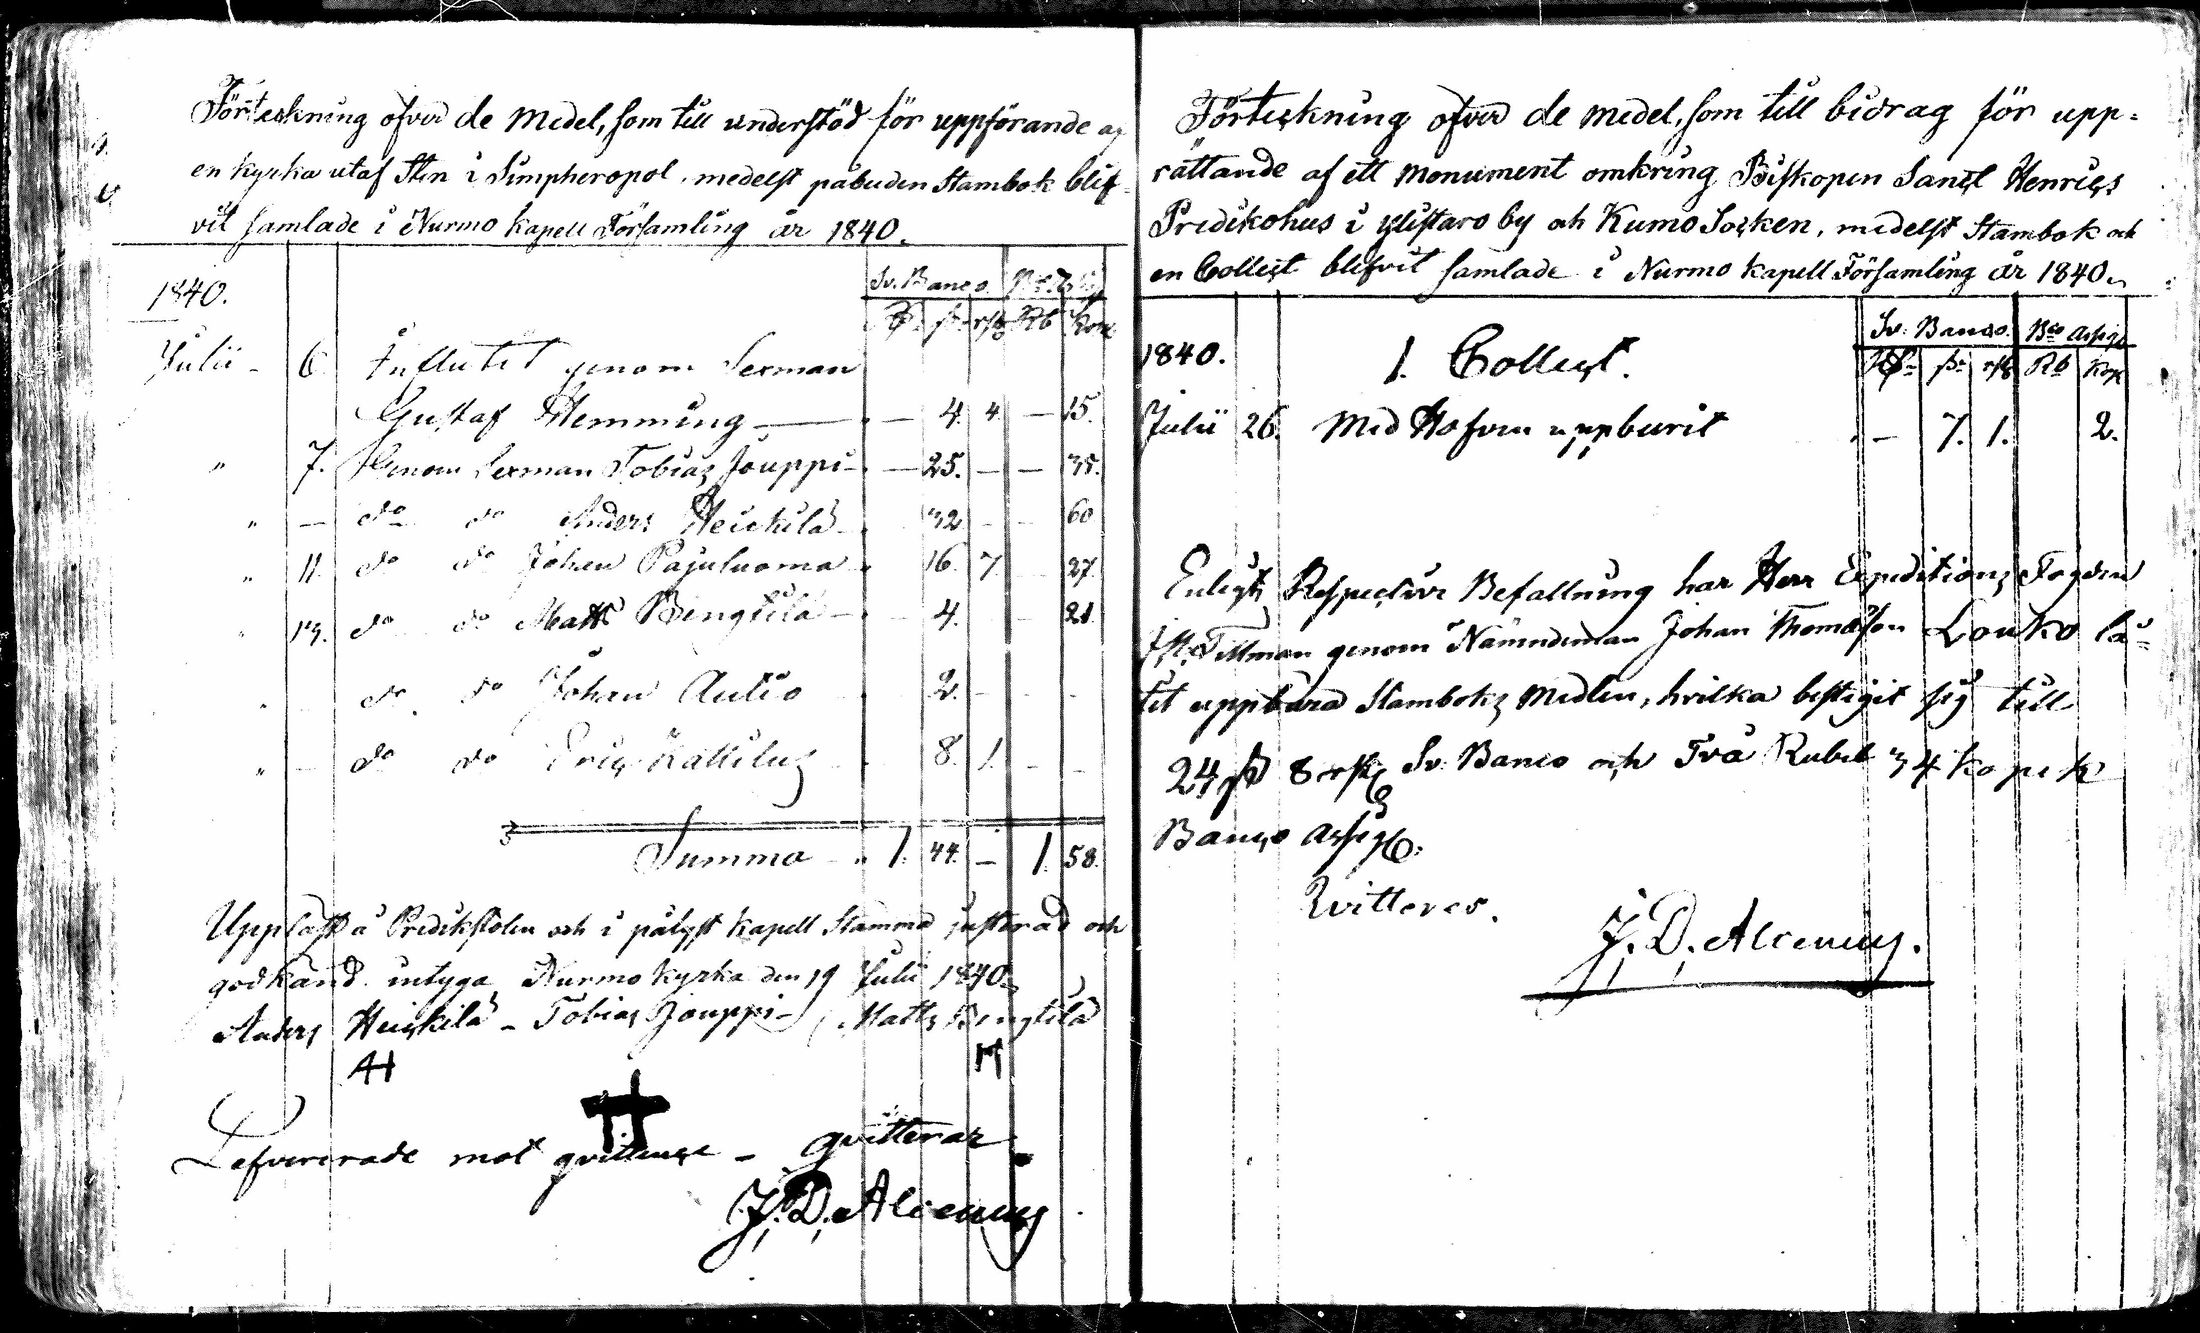 Förteckning öfver de medel, som till understöd för uppförande af
en kyrka utaf Sten i Simpheropol, medelst påbuden Stambok blif-
vit samlade i Nurmo kapell Församling år 1840.
1840. Sv. Banco
sk. rst. Rb Kop
Julii - 6 Influtit genom Sexman
Gustaf Hemming — — 4. 4. — 15.
" 7. Genom Sexman Tobias Jouppi — — 25. — — 35.
" — do do Anders Heickilä — 32 — — 60
" 11. do do Johan Pajuluoma 16. 7. 27.
" 13. do do Matts Bengtilä — 4. 21.
" — do do Johan Autio 2. — —
" — do do Eric Kallilus 8. 1. — —
Summa — 1. 44. — 1. 58.
Uppläst å Predikstolen och i pålyst kapell Stamma justerad och
godkänd intyga Nurmo kyrka den 19 Julii 1840.
Anders Heickilä — Tobias Jouppi — Matts Bengtilä
AH
Lefvererade mot qvittence — qvitterar
J. D. Alcenius
Förteckning öfver de medel, som till bidrag för upp-
rättande af ett monument omkring Biskopen Sanct Henrics
Predikohus i Ylistaro by och Kumo Socken, medelst Stambok och
en Collect blifvit samlade i Nurmo kapell Församling år 1840.
Sv. Banco Bco Assign
1840. 1. Collect. sk. rst. Rb Kop
Julii 26. Med Hofven uppburit — 7. 1. 2.
Enligt Respective Befallning har Herr Expeditions Fogden
Tillman genom Nämndeman Johan Thomasson Louko lå-
tit uppbära Stamboks Medlen, hvilka bestigit sig till
24 sk 8 rst Sv. Banco och Två Rubel 34 kopek
Banco Assign.
Qvitteres.
J. D. Alcenius.